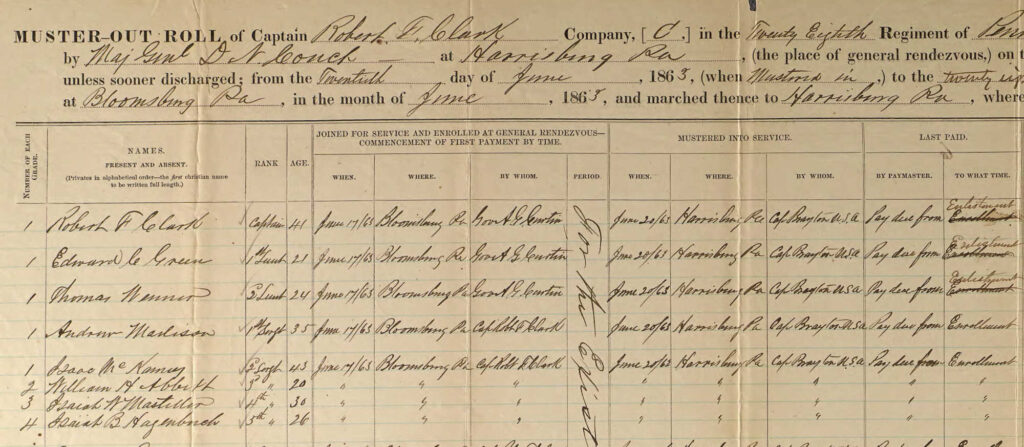 MUSTER-OUT ROLL of Captain Robert F. Clark Company, [C.] in the Twenty Eighth Regiment of
by Maj Genl D N Couch at Harrisburg Pa, (the place of general rendezvous,) on
unless sooner discharged; from the Twentieth day of June, 1863, (when Mustered in,) to the twenty
at Bloomsburg Pa, in the month of June, 1863, and marched thence to Harrisburg Pa, where
NUMBER OF EACH GRADE.
NAMES.
PRESENT AND ABSENT.
(Privates in alphabetical order—the first christian name to be written full length.)
RANK
AGE.
JOINED FOR SERVICE AND ENROLLED AT GENERAL RENDEZVOUS—
COMMENCEMENT OF FIRST PAYMENT BY TIME.
WHEN. WHERE. BY WHOM. PERIOD.
MUSTERED INTO SERVICE.
WHEN. WHERE. BY WHOM.
LAST PAID.
BY PAYMASTER. TO WHAT TIME.
1 Robert F Clark Captain 41 June 17/63 Bloomsburg Pa Gov A G Curtin June 20/63 Harrisburg Pa Cap Brayton U.S.A Pay due from Enlistment Enrollment
1 Edward C Green 1st Lieut 21 June 17/63 Bloomsburg Pa Gov A G Curtin June 20/63 Harrisburg Pa Cap Brayton U.S.A Pay due from Enlistment Enrollment
1 Thomas Wenner 2 Lieut 24 June 17/63 Bloomsburg Pa Gov A G Curtin June 20/63 Harrisburg Pa Cap Brayton U.S.A Pay due from Enlistment Enrollment
1 Andrew Madison 1st Sergt 35 June 17/63 Bloomsburg Pa Cap Robt F. Clark June 20/63 Harrisburg Pa Cap Brayton U.S.A Pay due from Enrollment
1 Isaac McKamey 2 Sergt 43 June 17/63 Bloomsburg Pa Cap Robt F. Clark June 20/63 Harrisburg Pa Cap Brayton U.S.A Pay due from Enrollment
2 William H Abbott 3d " 20 " " " " " " " "
3 Isaiah W Masteller 4th " 30 " " " " " " " "
4 Isaiah B Hagenbuch 5th " 26 " " " " " " " "
For the Exist